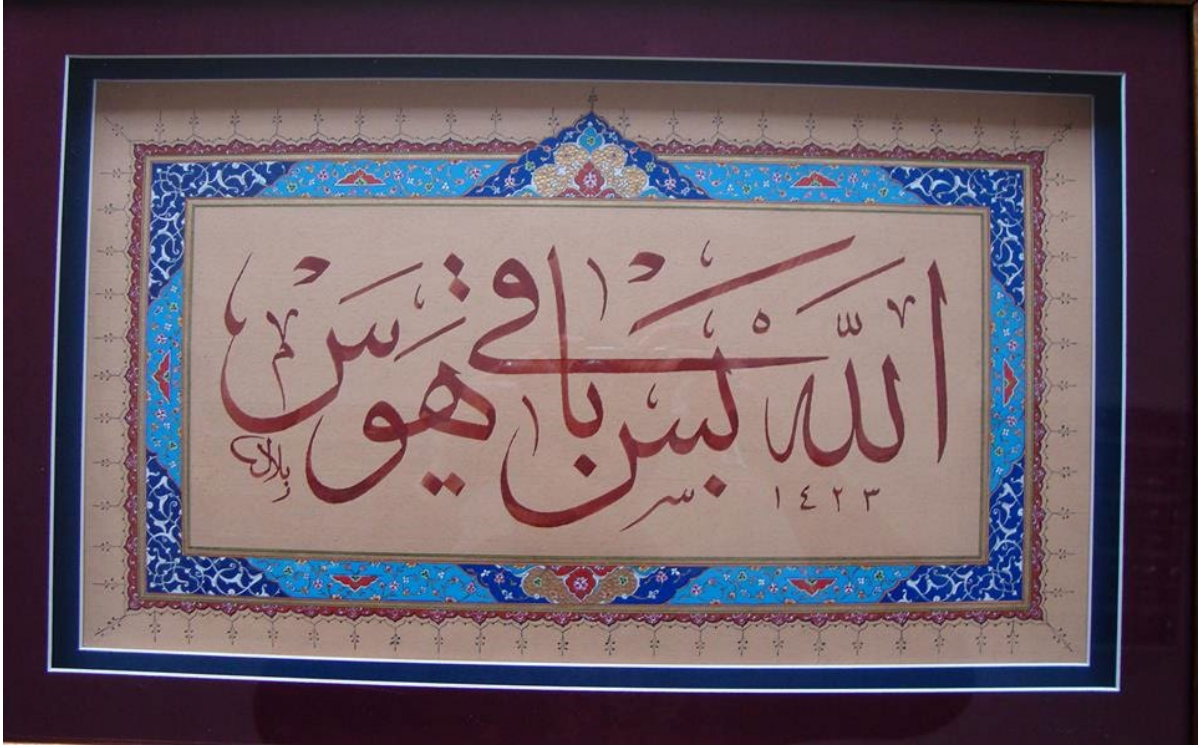 الله بس باقی هوس
١٤٢٣
بلال